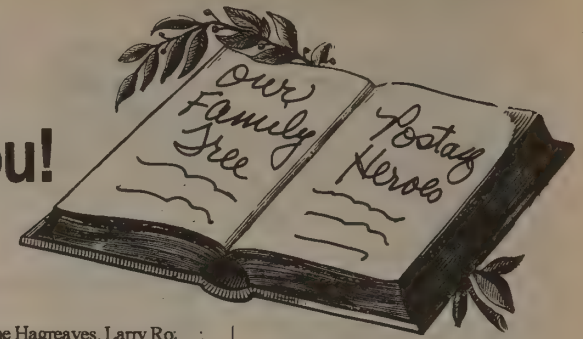 ou!
our
Family
Tree
Postag
Heroes
e Hagreaves, Larry Ro: